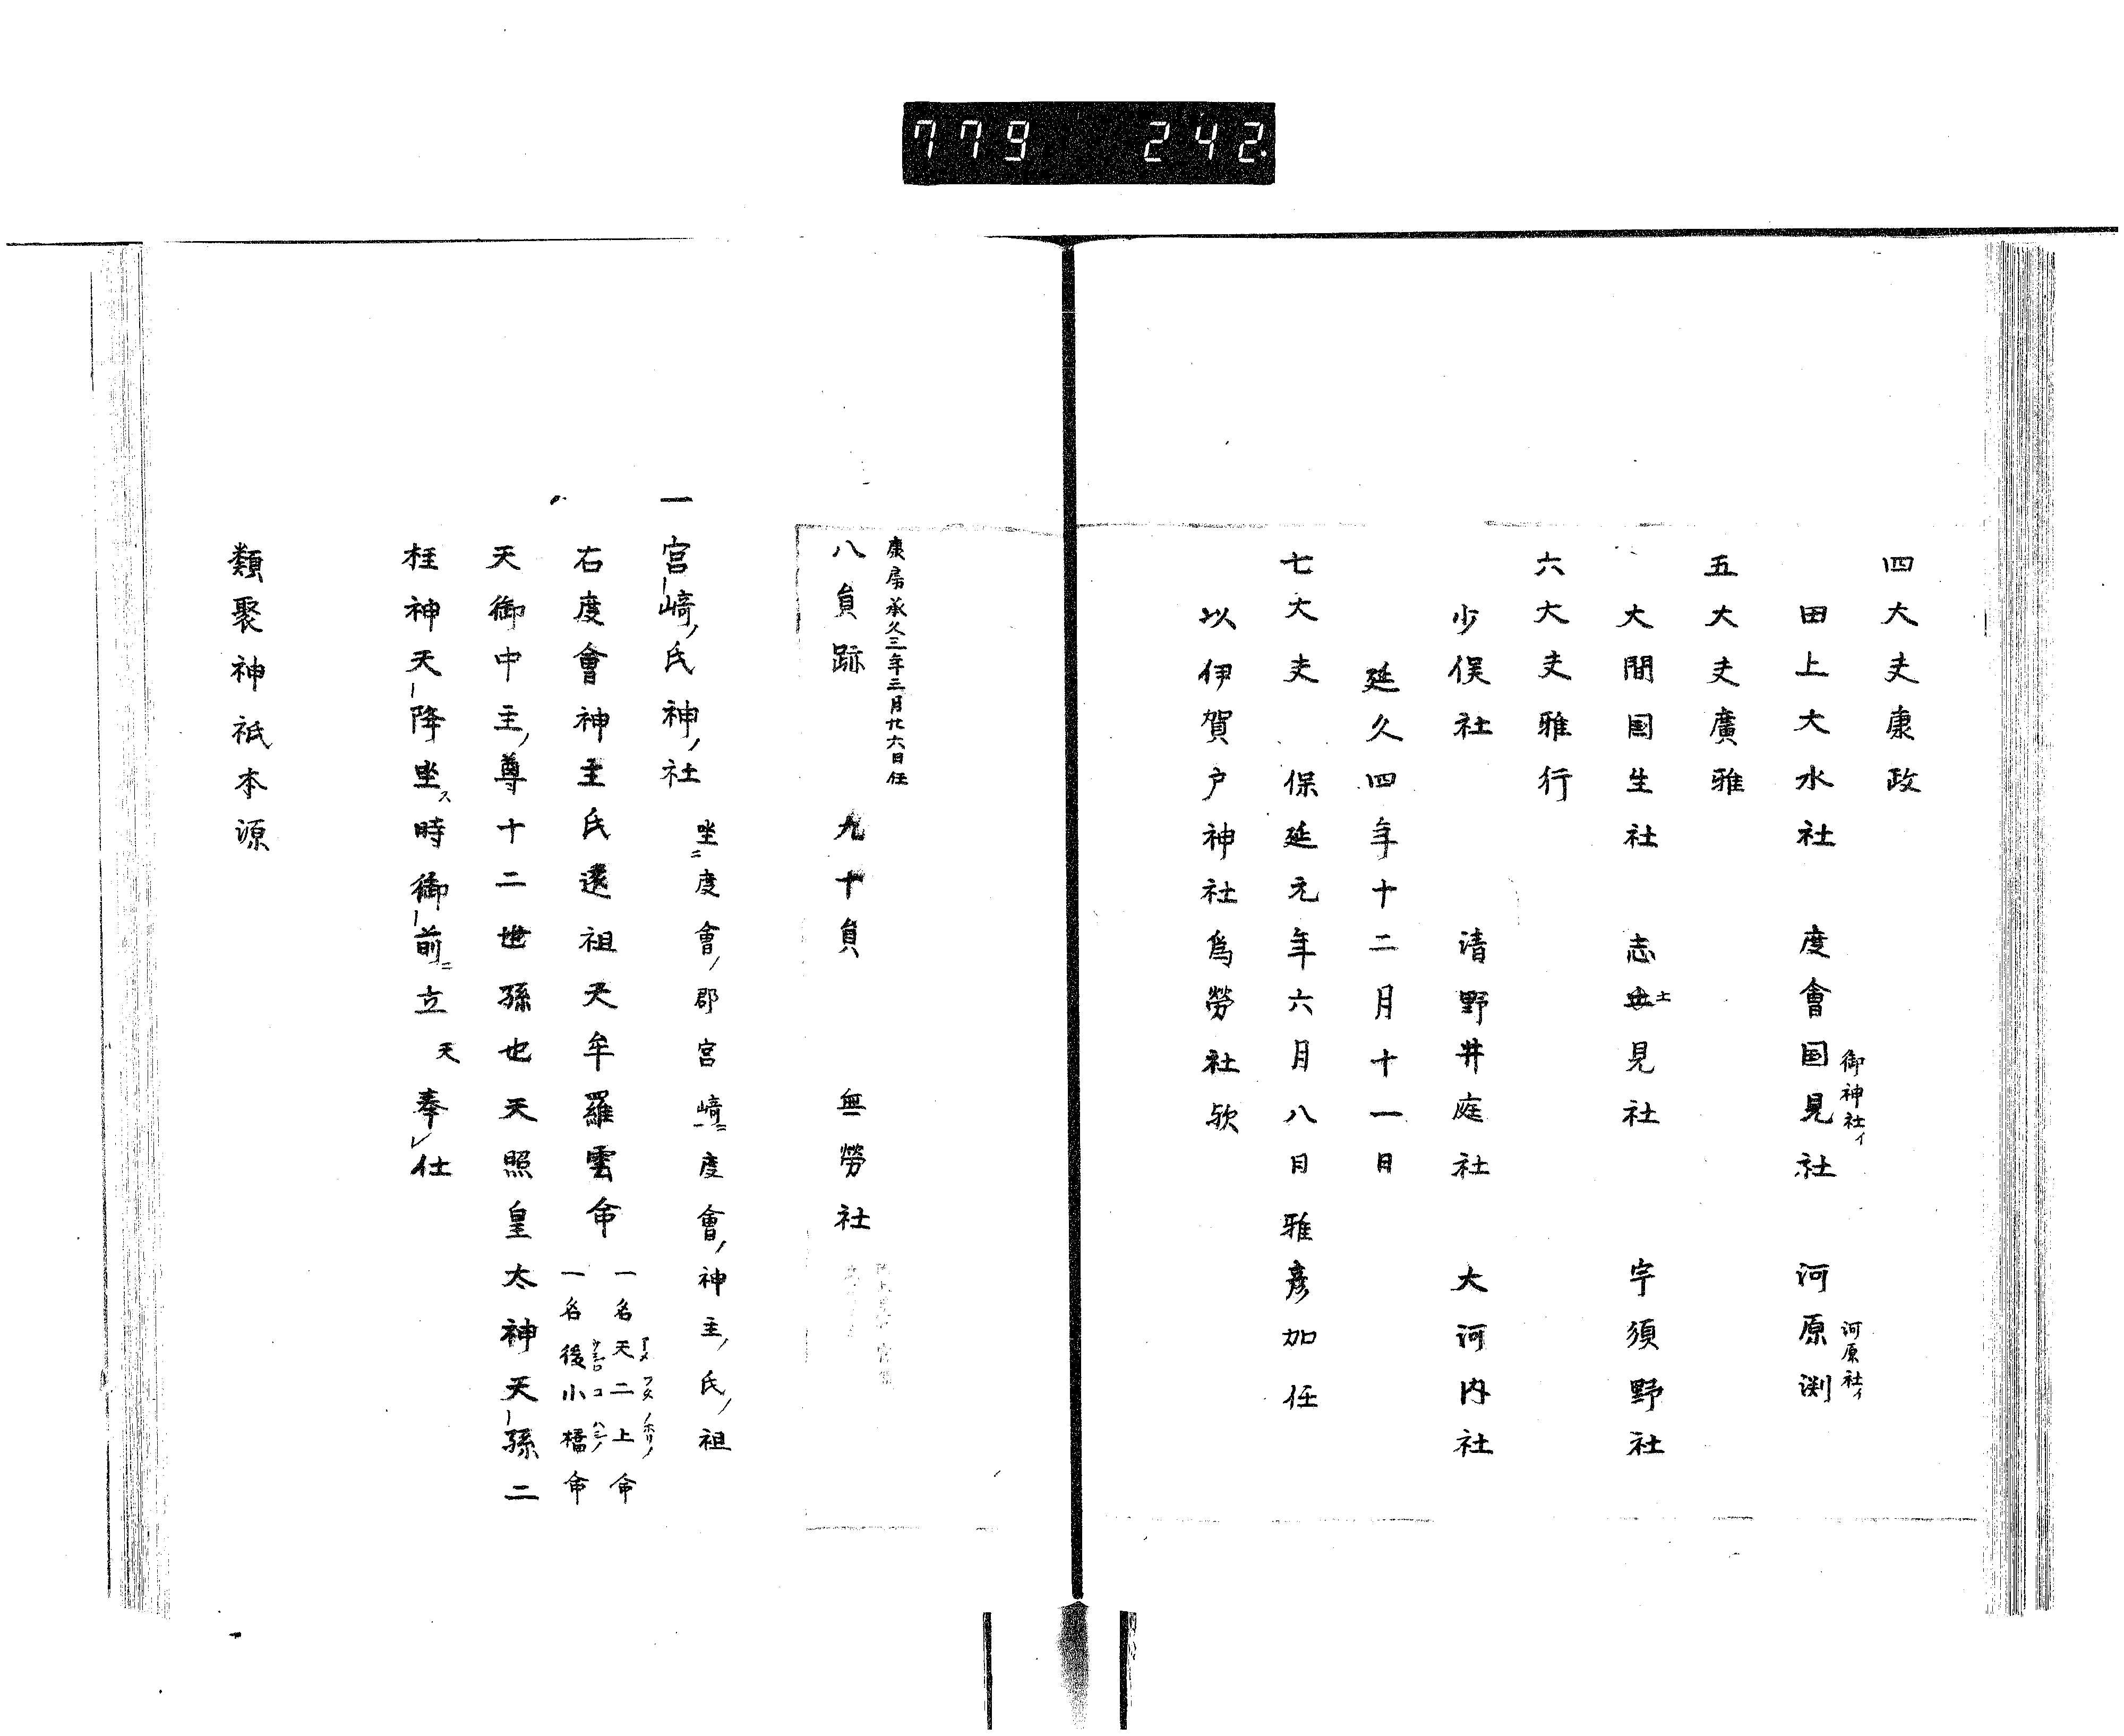 779 242.
四大夫康政
田上大水社 度會国見社 河原渕
御神社イ 河原社イ
五大夫廣雅
大間国生社 志毋見社 宇須野社
土
六大夫雅行
少俣社 清野井庭社 大河内社
延久四年十二月十一日
七大夫 保延元年六月八日雅彦加任
以伊賀戸神社爲勞社欤
康房承久三年三月廿六日任
八員跡 九十員 無勞社
一宮崎ノ氏神ノ社 坐二度會ノ郡宮崎一二度會ノ神主ノ氏ノ祖
右度會神主氏遠祖天牟羅雲命 一名天二上命
アメ フタ ノホリノ
一名後小橋命
ウシロ コ ハシノ
天御中主ノ尊十二世孫也天照皇太神天孫二
柱神天降坐ス時御前ニ立天奉仕
類聚神祇本源